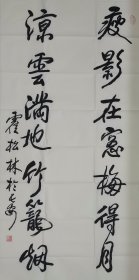 瘦影在窓梅得月
涼雲满地竹籠烟
霍松林於長安